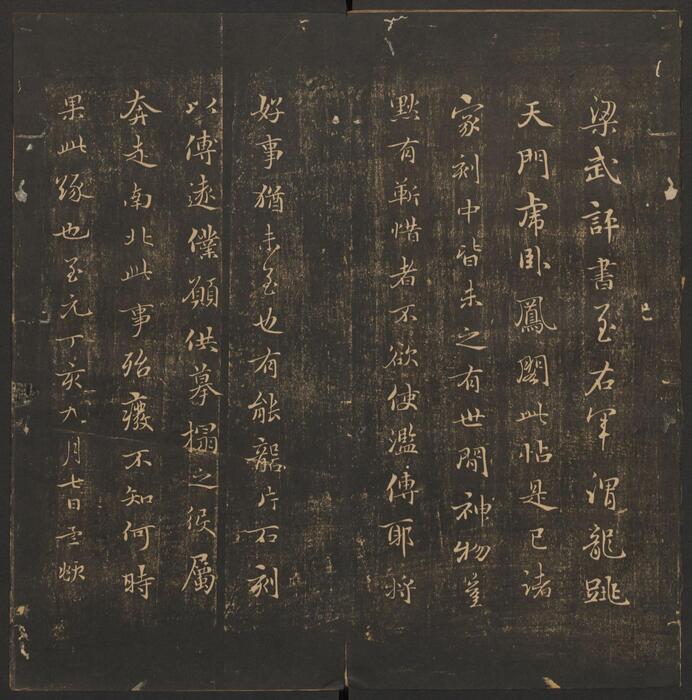 梁武評書至右軍謂龍跳
天門虎臥鳳閣此帖是已諸
家刻中皆未之有世間神物豈
默有靳惜者不欲使濫傳耶將
好事猶未至也有能龕片石刻
以傳遠僕願供摹搨之役屬
奔走南北此事殆癈不知何時
果此緣也至元丁亥九月七日